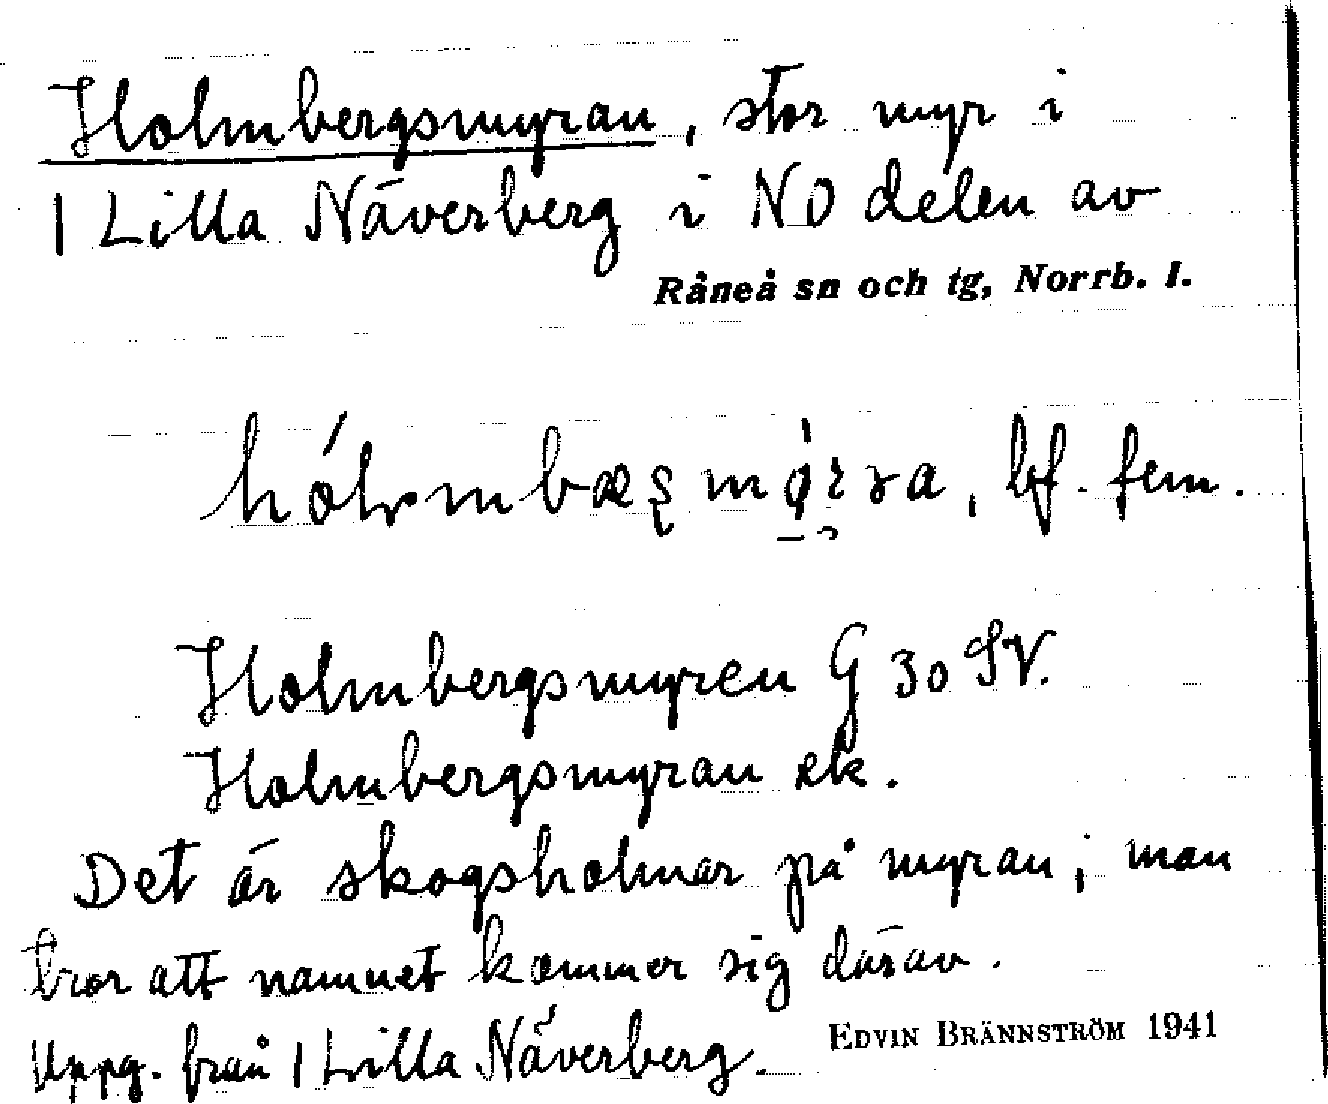 Holmbergsmyran, stor myr i
1 Lilla Näverberg i NO delen av
Råneå sn och tg, Norrb. l.
bf. fem.
Holmbergsmyren G 30 SV.
Holmbergsmyran ek.
Det är skogsholmar på myran; man
tror att namnet kommer sig därav.
Uppg. från 1 Lilla Näverberg.
EDVIN BRÄNNSTRÖM 1941